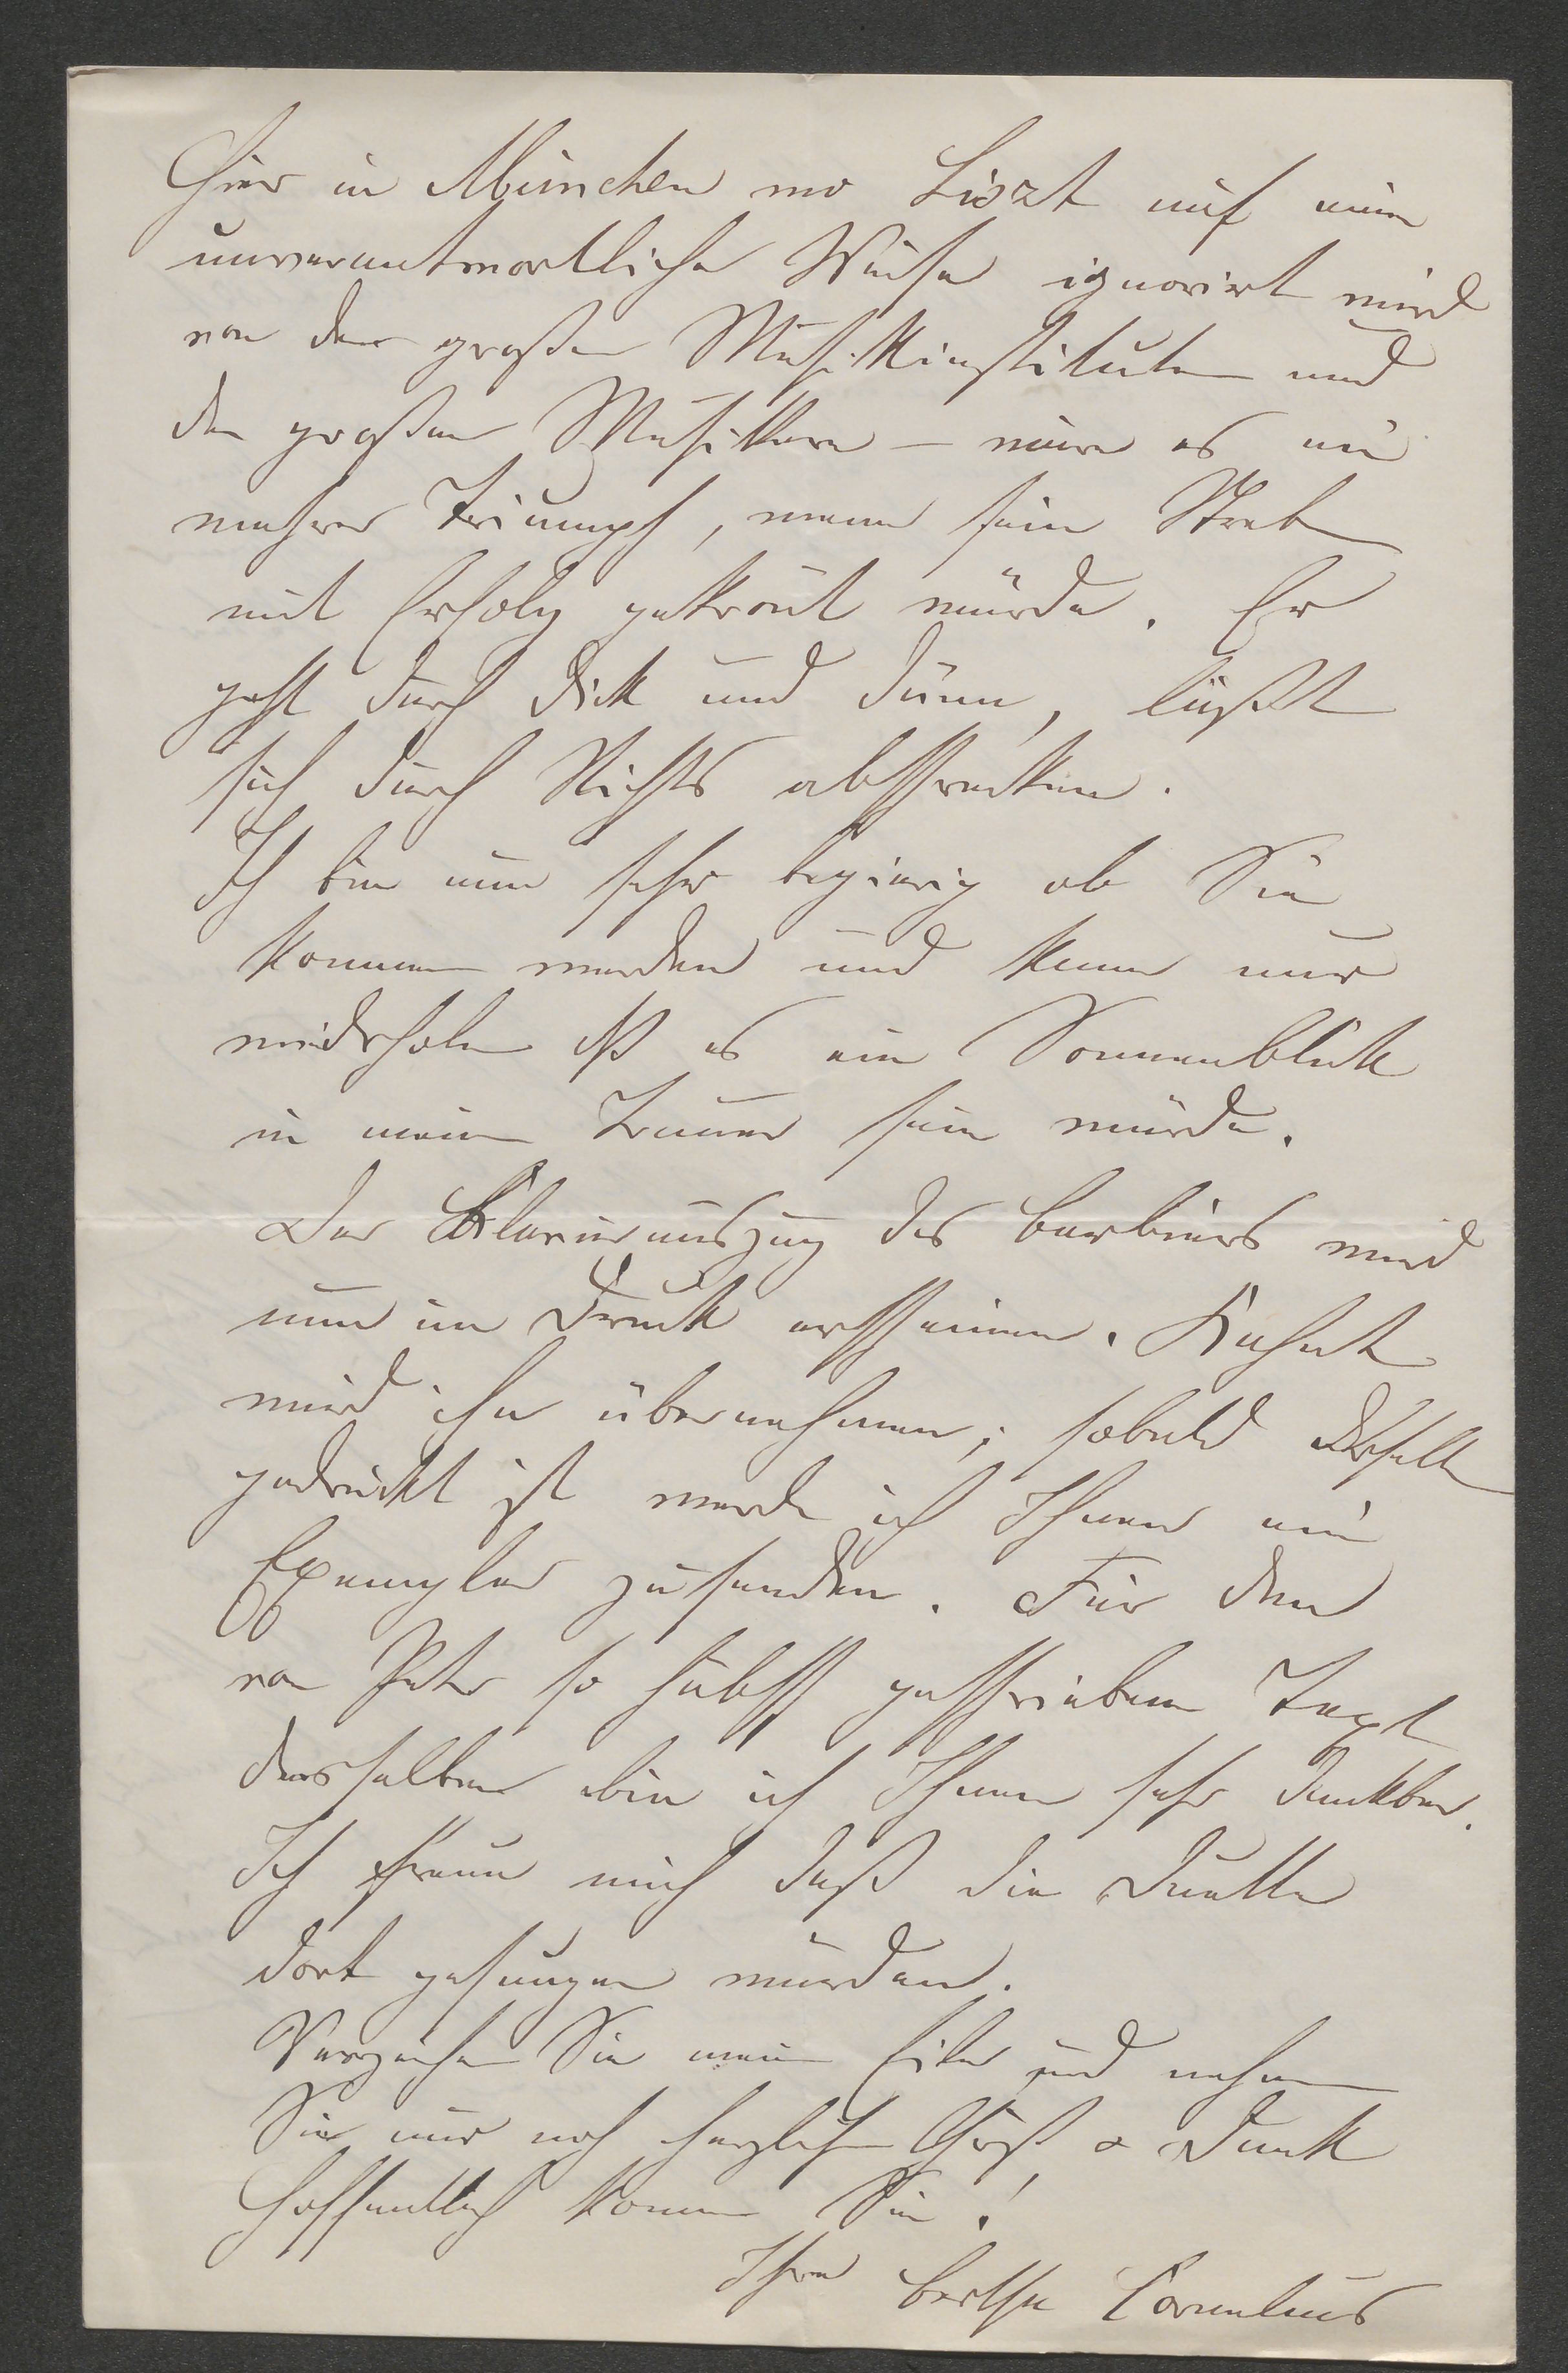 Hier in München wo Liszt auf eine
unverantwortliche Weise ignorirt wird
von den großen Musikinstituten und
den großen Musikern – wäre es ein
wahrer Triumph, wenn sein Streben
mit Erfolg gekrönt würde. Er
geht durch Dick und Dünn, läßt
sich durch Nichts abschrecken.
Ich bin nun sehr begierig ob Sie
kommen werden und kann nur
wiederholen daß es ein Sonnenblick
in meine Trauer sein würde.
Der Klavierauszug des Barbiers wird
nun im Druck erscheinen. Kahnt
wird ihn übernehmen; sobald derselbe
gedruckt ist werde ich Ihnen ein
Exemplar zusenden. Für den
von Peter so hübsch geschriebenen Text
desselben bin ich Ihnen sehr dankbar.
Ich freue mich daß die Duette
dort gesungen wurden.
Verzeihen Sie meine Eile und nehmen
Sie nur noch herzlichen Gruß & Dank
Hoffentlich kommen Sie!
Ihre Bertha Cornelius